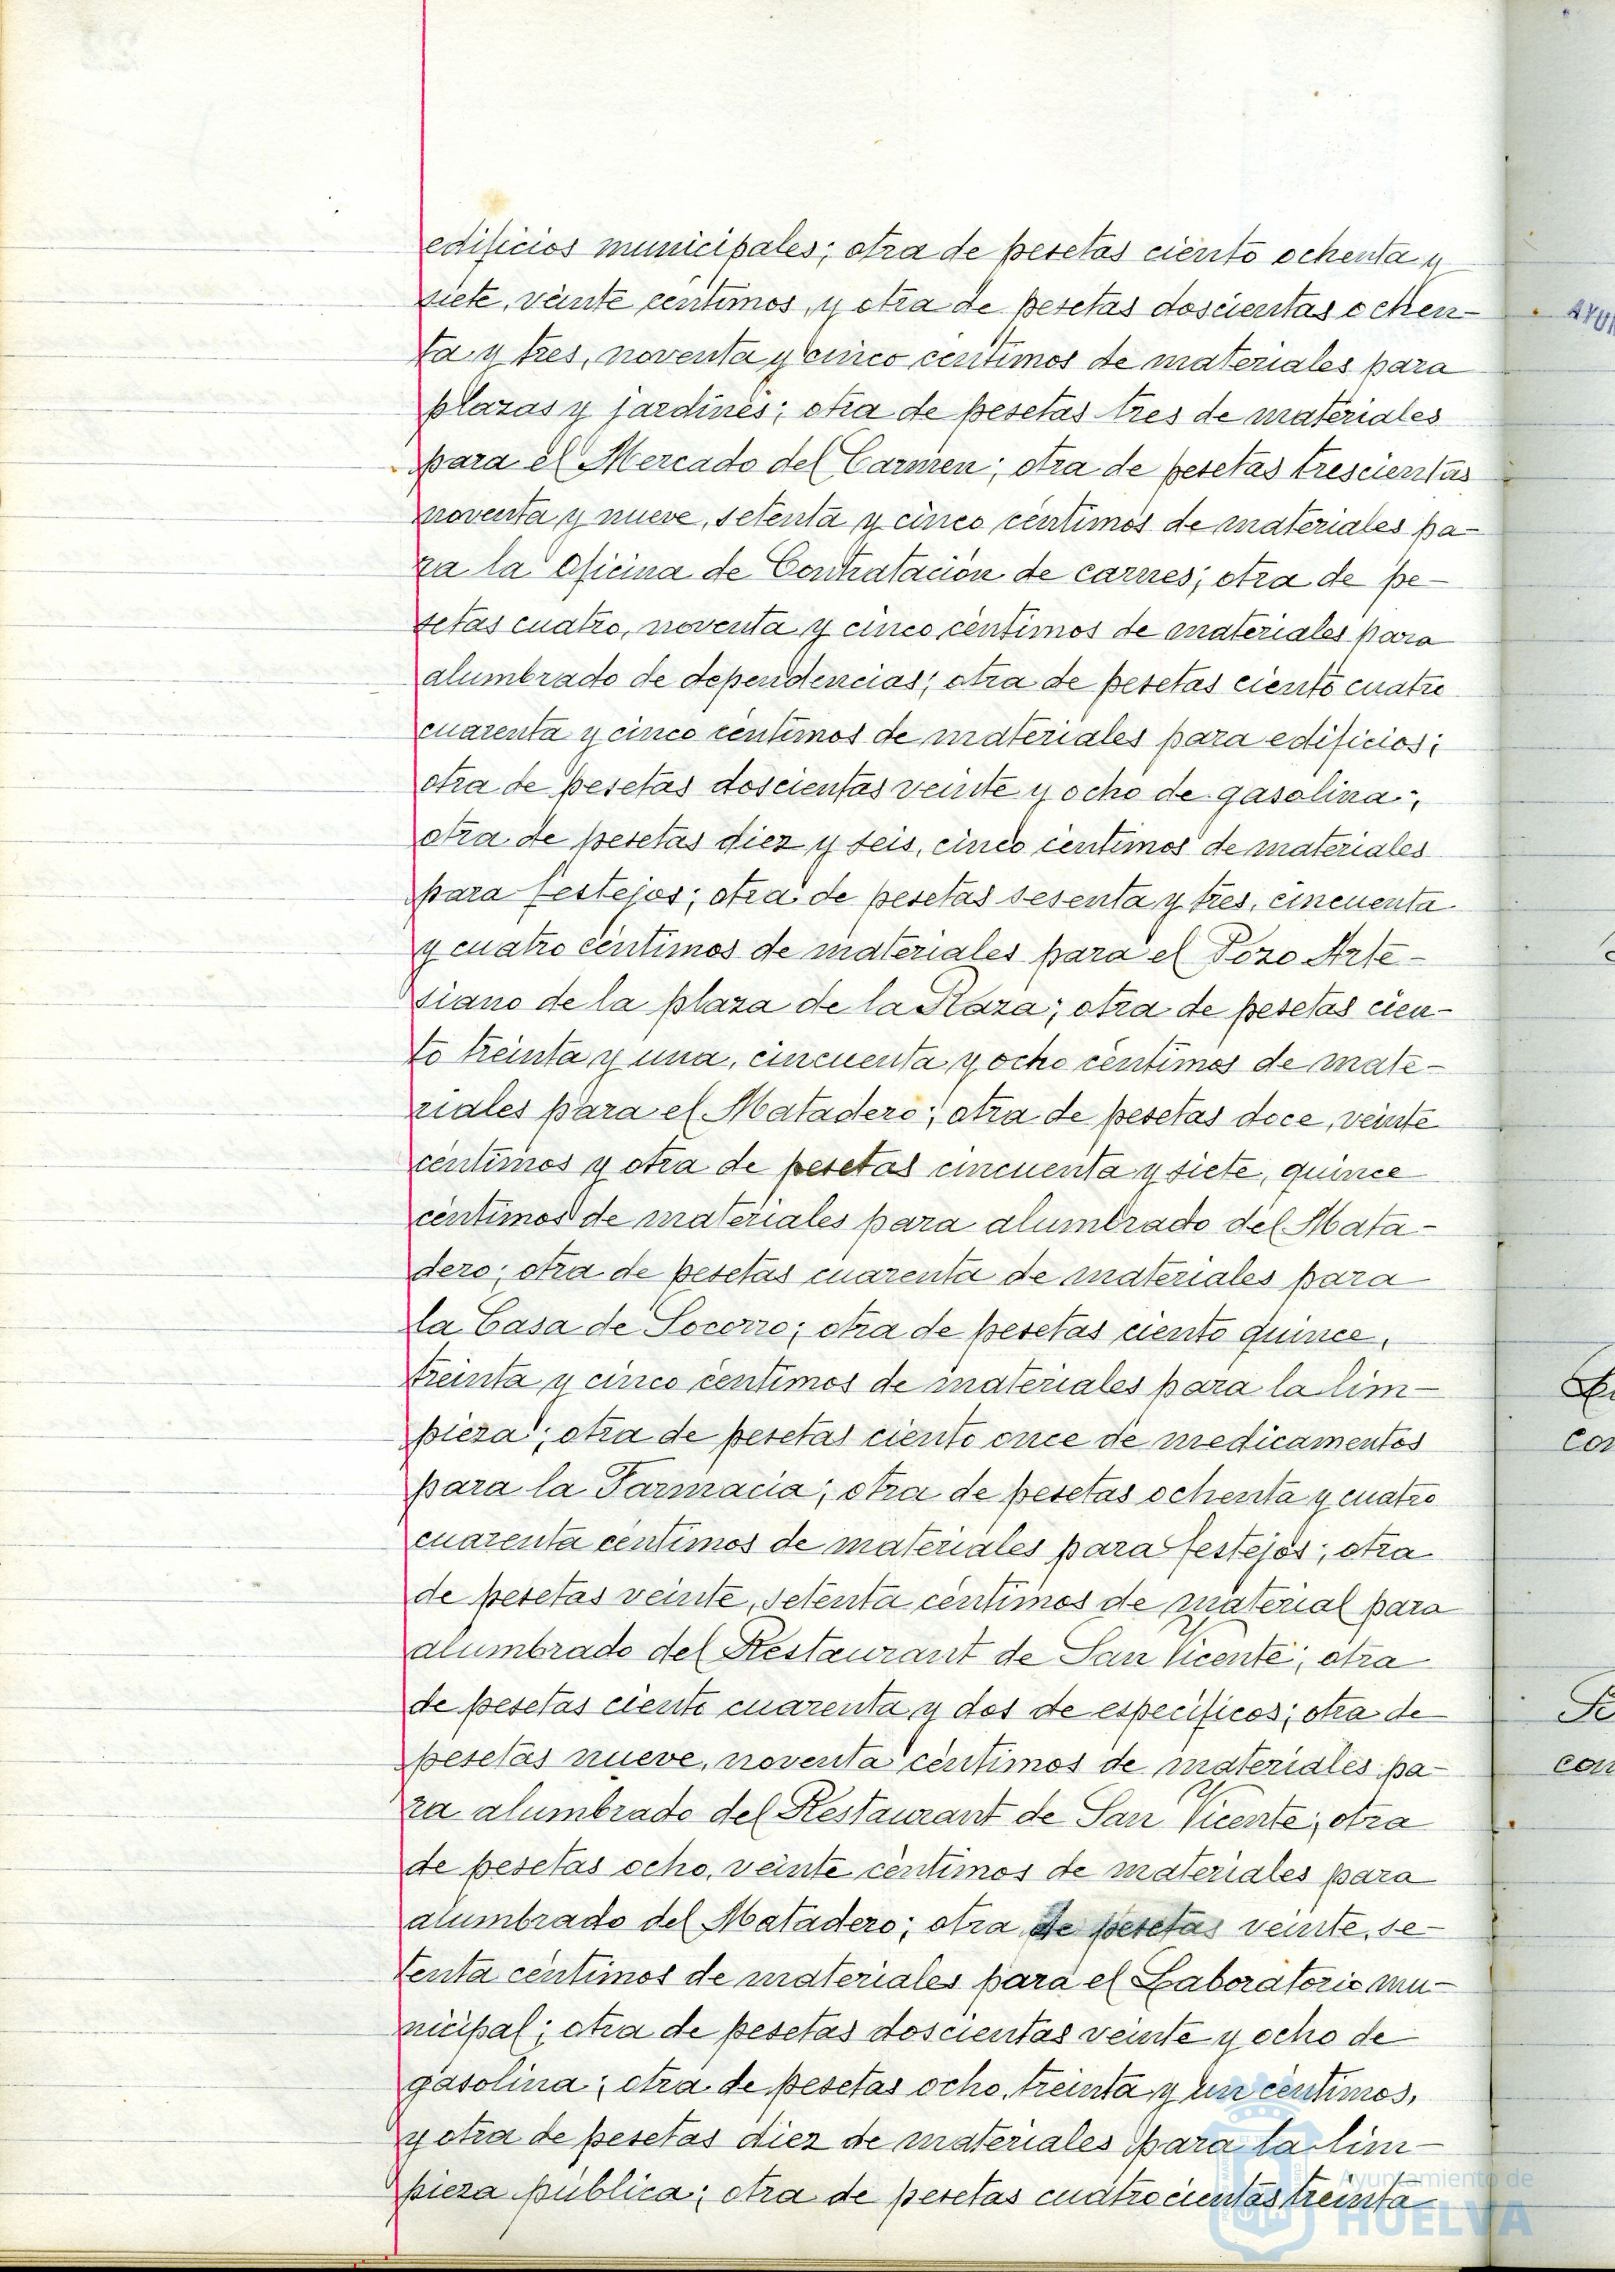 edificios municipales; otra de pesetas ciento ochenta y
siete, veinte centimos, y otra de pesetas doscientas ochen-
ta y tres, noventa y cinco centimos de materiales para
plazas y jardines; otra de pesetas tres de materiales
para el Mercado del Carmen; otra de pesetas trescientas
noventa y nueve, setenta y cinco centimos de materiales pa-
ra la Oficina de Contratación de carnes; otra de pe-
setas cuatro, noventa y cinco centimos de materiales para
alumbrado de dependencias; otra de pesetas ciento cuatro
cuarenta y cinco centimos de materiales para edificios;
otra de pesetas doscientas veinte y ocho de gasolina;
otra de pesetas diez y seis, cinco centimos de materiales
para festejos; otra de pesetas sesenta y tres, cincuenta
y cuatro centimos de materiales para el Pozo Arte-
siano de la plaza de la Raza; otra de pesetas cien-
to treinta y una, cincuenta y ocho centimos de mate-
riales para el Matadero; otra de pesetas doce, veinte
centimos y otra de pesetas cincuenta y siete, quince
centimos de materiales para alumbrado del Mata-
dero; otra de pesetas cuarenta de materiales para
la Casa de Socorro; otra de pesetas ciento quince,
treinta y cinco centimos de materiales para la lim-
pieza; otra de pesetas ciento once de medicamentos
para la Farmacia; otra de pesetas ochenta y cuatro
cuarenta centimos de materiales para festejos; otra
de pesetas veinte, setenta centimos de material para
alumbrado del Restaurant de San Vicente; otra
de pesetas ciento cuarenta y dos de especificos; otra de
pesetas nueve, noventa centimos de materiales pa-
ra alumbrado del Restaurant de San Vicente; otra
de pesetas ocho, veinte centimos de materiales para
alumbrado del Matadero; otra de pesetas veinte, se-
tenta centimos de materiales para el Laboratorio mu-
nicipal; otra de pesetas doscientas veinte y ocho de
gasolina; otra de pesetas ocho, treinta y un centimos,
y otra de pesetas diez de materiales para la lim-
pieza pública; otra de pesetas cuatrocientas treinta
Ayuntamiento de
HUELVA